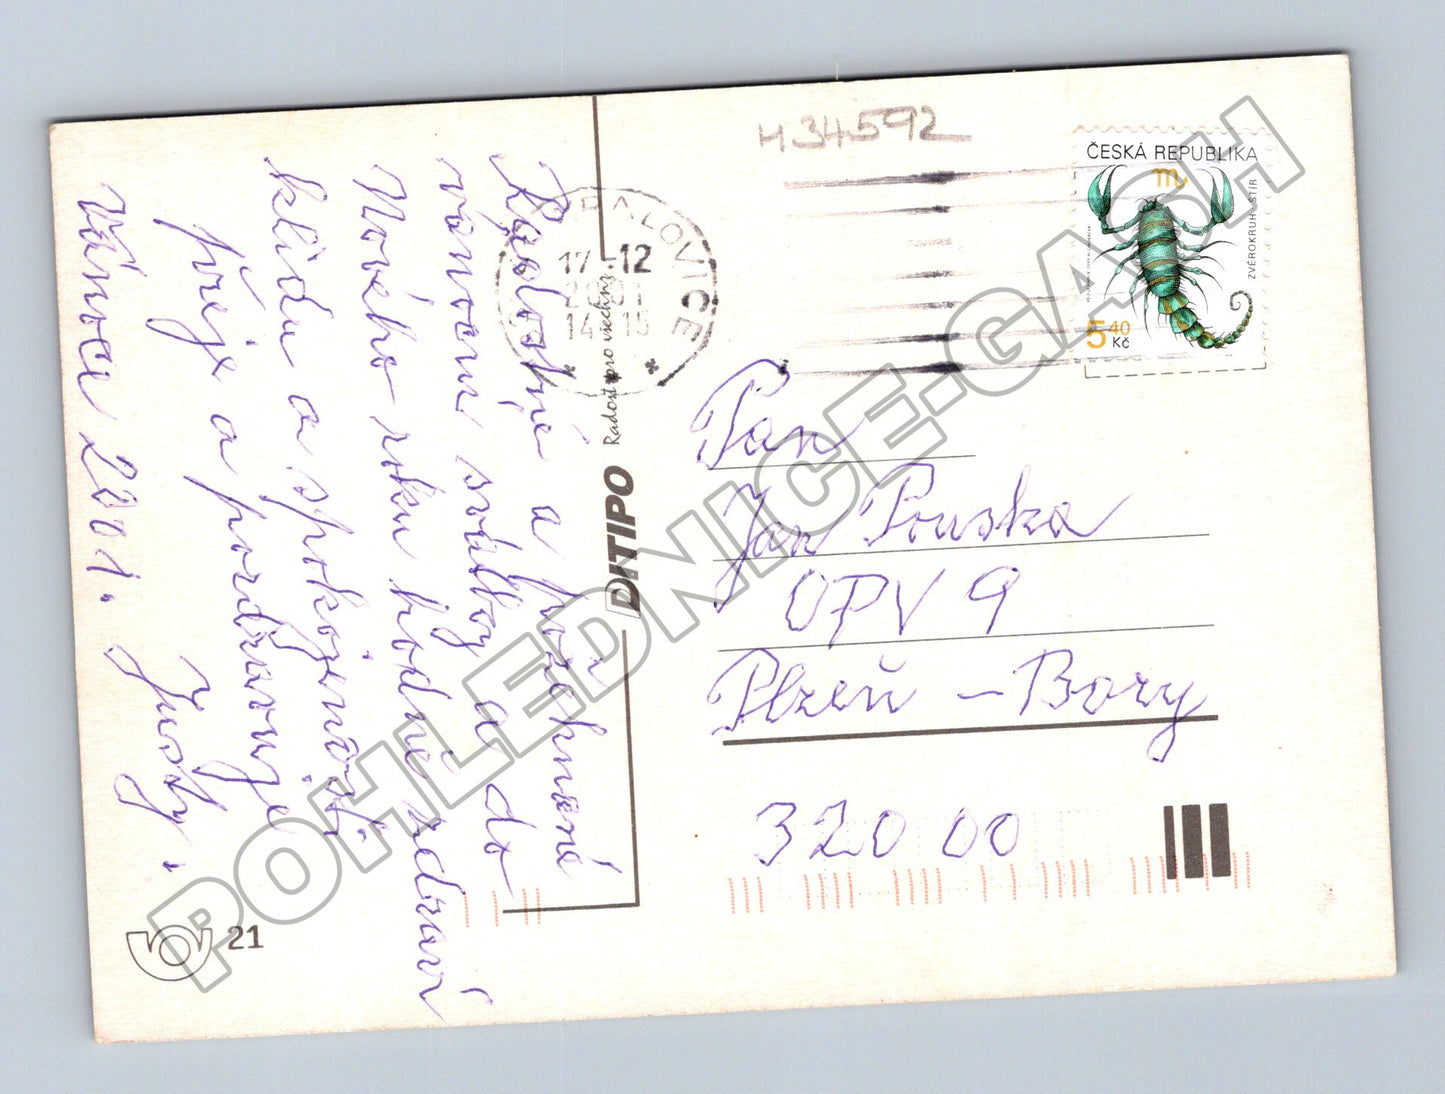 Radostné a požehnané
vánoční svátky a do
Nového roku hodně zdraví
klidu a spokojenosti
přeje a pozdravuje
Vánoce 2001. Justy.
434592
ČESKÁ REPUBLIKA
ZVĚROKRUH - ŠTÍR
5 40
Kč
KRALOVICE
17.-12
2001
14-15
Radost pro všechny
DITIPO
Pan
Jan Pouska
OPV 9
Plzeň - Bory
320 00
21
POHLEDNICE-GASH